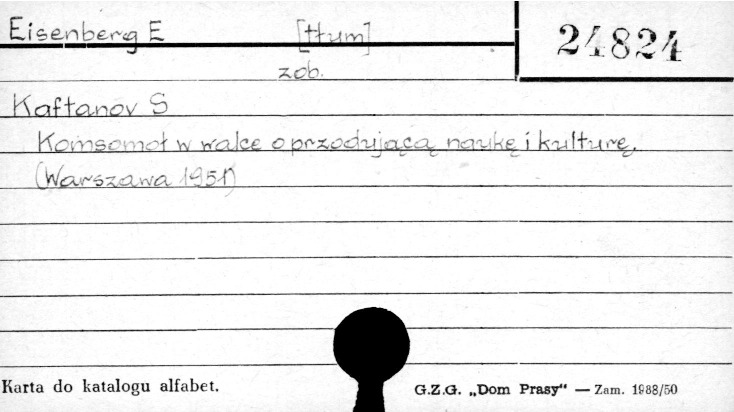 Eisenberg E [tłum] 24824
zob.
Kaftanov S
Komsomoł w walce o przodującą naukę i kulturę.
(Warszawa 1951)
Karta do katalogu alfabet. G.Z.G. „Dom Prasy" — Zam. 1988/50